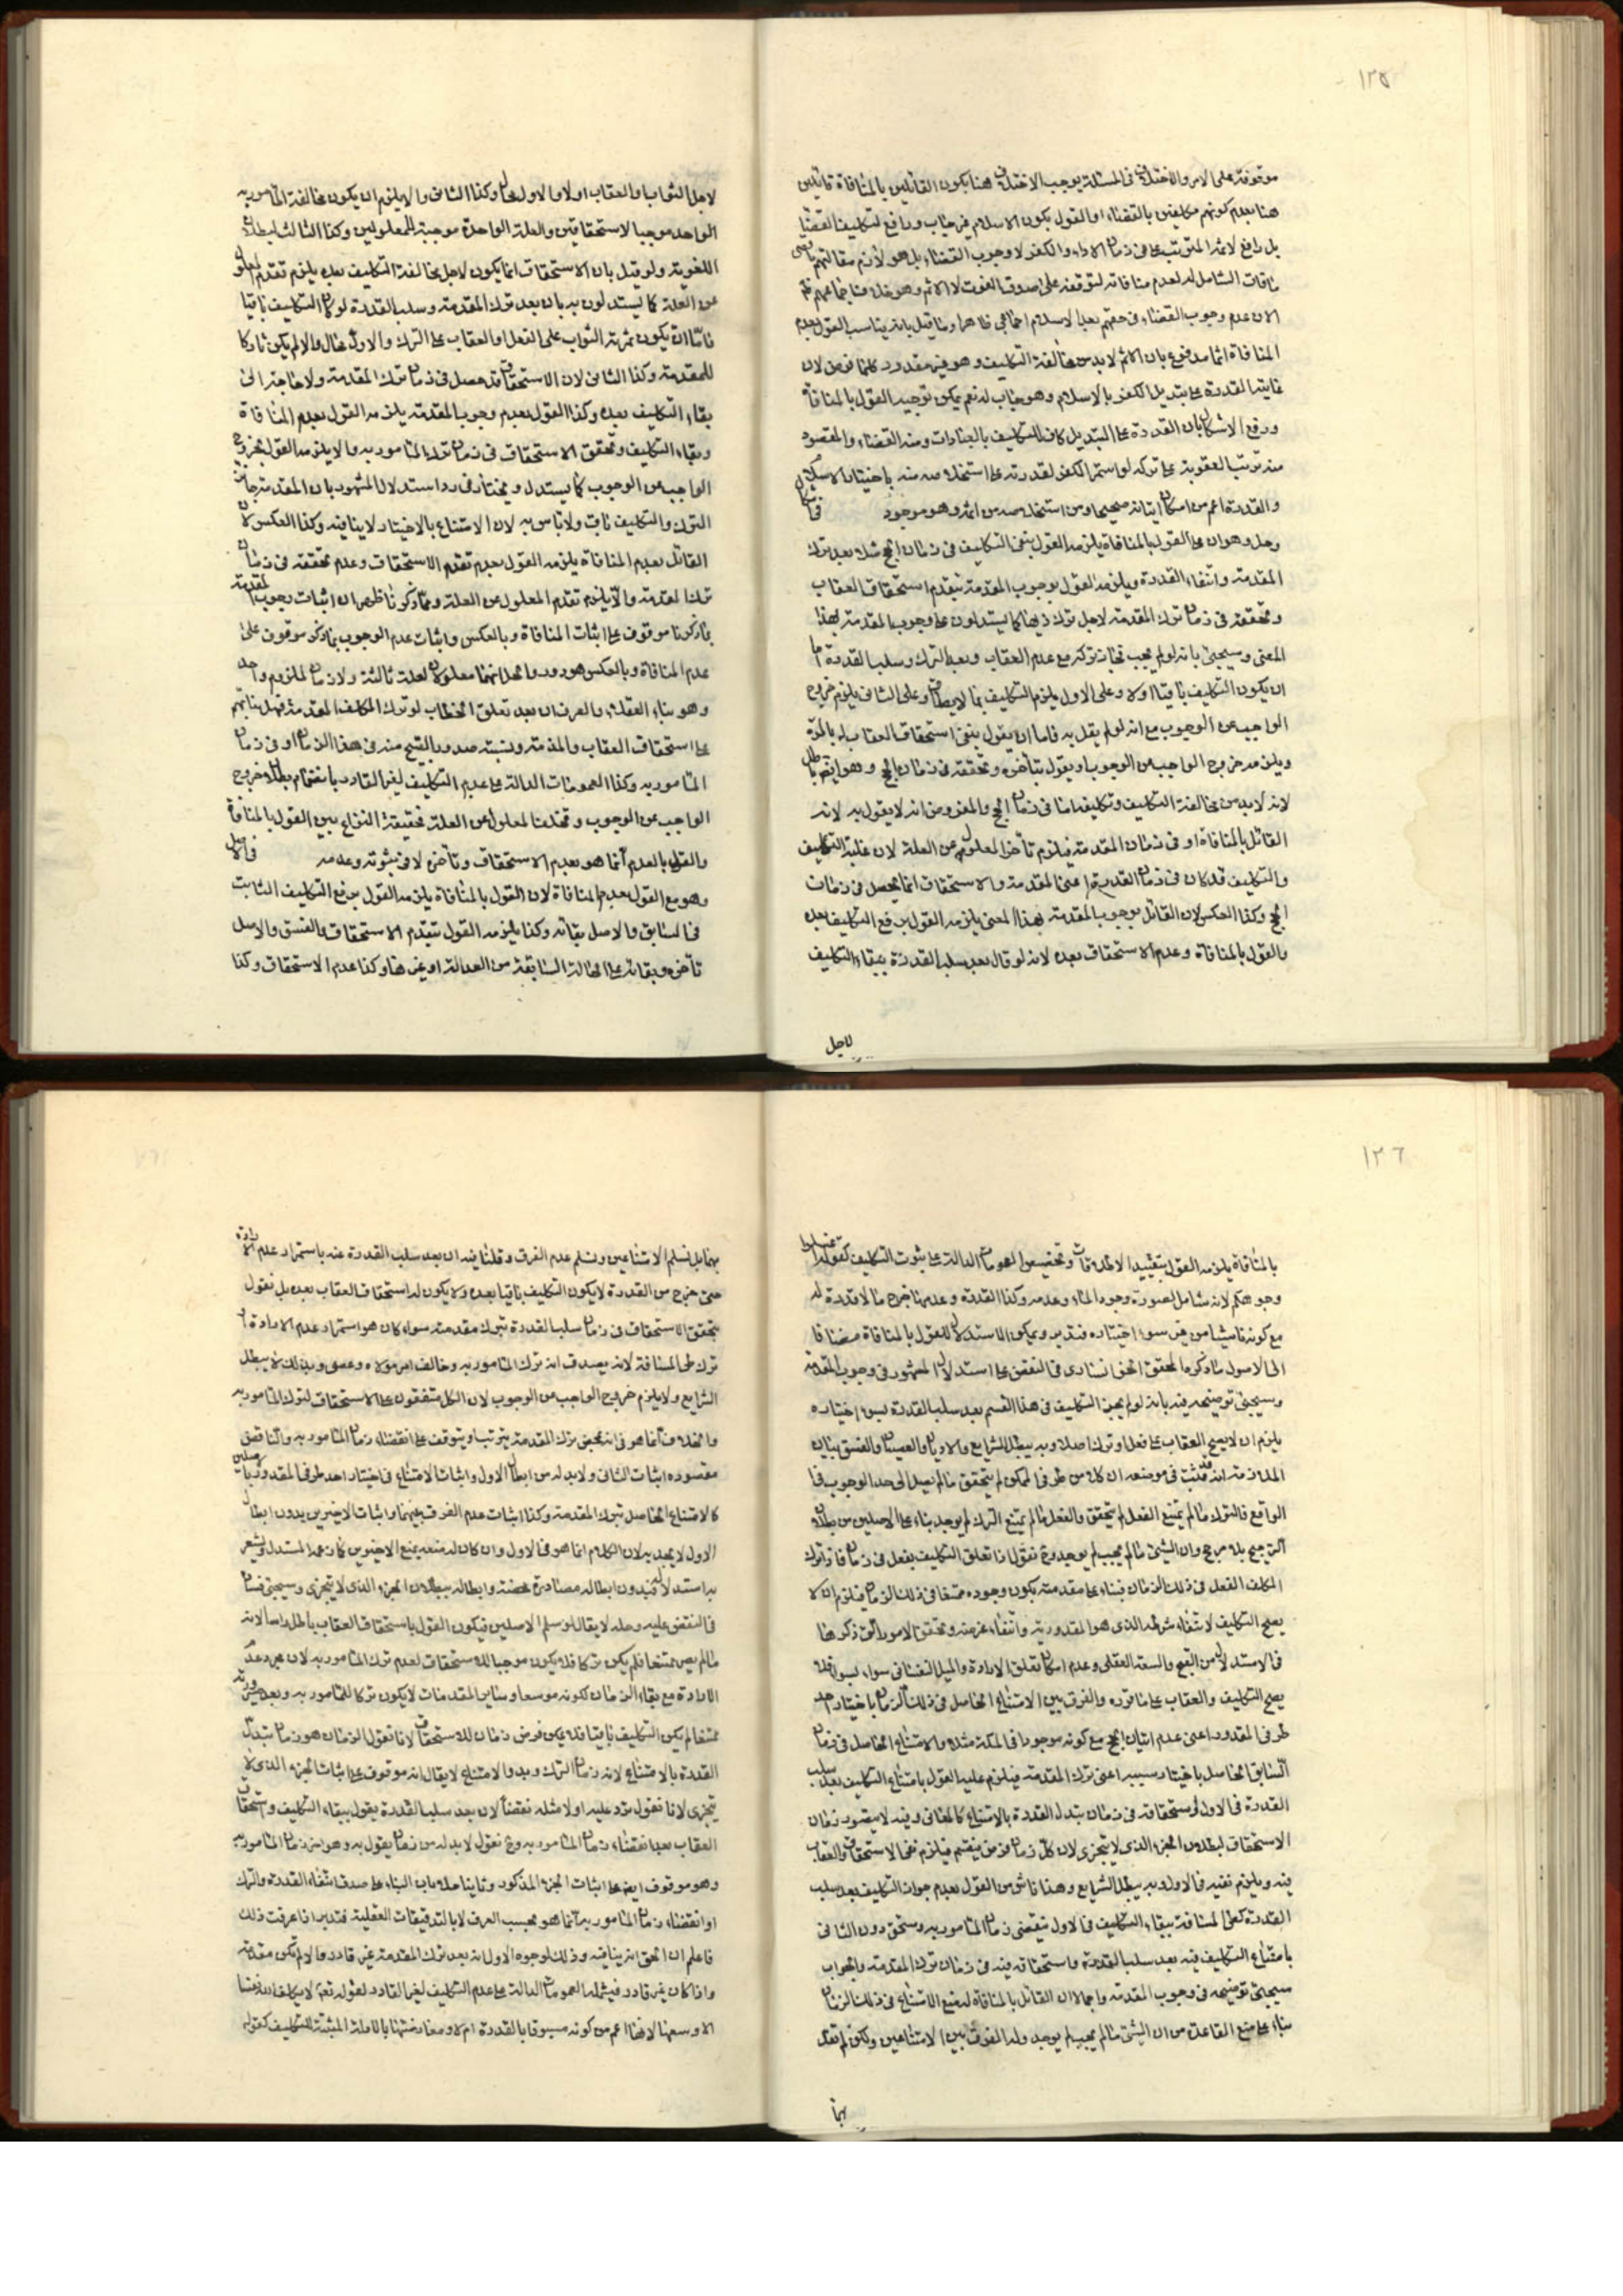 ١٢٥
موقوفة على الامر والاختلاف فى المسئلة يوجب الاختلاف هنا يكون القائلين بالمنافاة قائلين
هنا بعدم كونهم مكلفين بالقضاء او القول بكون الاسلام غير جاب ورافع لتكليف القضاء
بل رافع لاثم المترتب على فى زمان الاداء والكفر لا وجوب القضاء بل هو لازم مقالتهم
فات الشامل له لعدم منافاته لتوقفه على صدق الفوت لا الاثم وهو خلاف اجماعهم
الان عدم وجوب القضاء فى حقهم بعد الاسلام اجماعى ظاهرا وما قيل بانه يناسب القول بعدم
المنافاة انما مدفوع بان الاثم لابد من مخالفة التكليف وهو غير مقدور كلما فرض لان
غايته القدرة على تبديل الكفر بالاسلام وهو جاب له نعم يمكن توجيه القول بالمنافاة
ودفع الاشكال بان القدرة على التبديل كاف للتكليف بالعبادات ومنه القضاء والمقصود
منه ترتب العقوبة على تركه لو استمر الكفر لقدرته على استخلاصه منه باختيار الاسلام
والقدرة اعم من امكان اتيانه صحيحا ومن استخلاصه من اثمه وهو موجود
وحل وهو ان على القول بالمنافاة يلزمه القول بنفى التكليف فى زمان الحج مثلا بعد ترك
المقدمة وانتفاء القدرة ويلزمه القول بوجوب المقدمة بتقدم استحقاق العقاب
وتحققه فى زمان ترك المقدمة لاجل ترك ذيها كما يستدلون على وجوب المقدمة بهذا
المعنى وسيجئ بانه لو لم يجب لجاز تركه مع عدم العقاب وبعد الترك وسلب القدرة اما
ان يكون التكليف باقيا اولا وعلى الاول يلزم التكليف بما لا يطاق وعلى الثانى يلزم خروج
الواجب عن الوجوب مع انه لو لم يقل به فاما ان يقول بنفى استحقاق العقاب له بالمرة
ويلزمه خروج الواجب عن الوجوب او يقول بتأخره وتحققه فى زمان الحج وهو ايضا باطل
لانه لابد من مخالفة التكليف وتكليفه اما فى زمان الحج والمفروض انه لا يقول به لانه
القائل بالمنافاة او فى زمان المقدمة فيلزم تأخر المعلول عن العلة لان علية التكليف
والتكليف قد كان فى زمان القدرة اعنى المقدمة والاستحقاق انما يحصل فى زمان
الحج وكذا العكس لان القائل بوجوب المقدمة بهذا المعنى يلزمه القول برفع التكليف بعده
والقول بالمنافاة وعدم الاستحقاق بعده لانه لو قال بعد سلب القدرة ببقاء التكليف
لاجل
لاجل الثواب والعقاب اولا والاول محال وكذا الثانى والا يلزم ان يكون مخالفة المأمور به
الواحد موجبا لاستحقاقين والعلة الواحدة موجبة للمعلولين وكذا الثالث لبطلان
اللغوية ولو قيل بان الاستحقاق انما يكون لاجل مخالفة التكليف بعده يلزم تقدم المعلول
عن العلة كما يستدلون به بان بعد ترك المقدمة وسلب القدرة لو كان التكليف باقيا
فاما ان يكون ثمرته الثواب على الفعل او العقاب على الترك والاول محال والا لم يكن تاركا
للمقدمة وكذا الثانى لان الاستحقاق قد حصل فى زمان ترك المقدمة ولا حاجة الى
بقاء التكليف بعده وكذا القول بعدم وجوب المقدمة يلزمه القول بعدم المنافاة
وبقاء التكليف وتحقق الاستحقاق فى زمان ترك المأمور به والا يلزمه القول بخروج
الواجب عن الوجوب كما يستدل ويختار فى رد استدلال المشهور بان المقدمة جايز
الترك والتكليف ثابت ولا بأس به لان الامتناع بالاختيار لا ينافيه وكذا العكس لان
القائل بعدم المنافاة يلزمه القول بعدم تقدم الاستحقاق وعدم تحققه فى زمان
ترك المقدمة والا يلزم تقدم المعلول عن العلة ومما ذكرنا ظهر ان اثبات وجوب المقدمة
بما ذكرنا موقوف على اثبات المنافاة وبالعكس واثبات عدم الوجوب بما ذكر موقوف على
عدم المنافاة وبالعكس هو دور والحل انهما معلولان لعلة ثالثة ولازمان لملزوم واحد
وهو بناء العقلاء والعرف ان بعد تعلق الخطاب لو ترك المكلف المقدمة فهل بنائهم
على استحقاق العقاب والمذمة ونسبة صدور القبيح منه فى هذا الزمان او فى زمان
المأمور به وكذا العمومات الدالة على عدم التكليف لغير القادر بانضمام بطلان خروج
الواجب عن الوجوب وتخلف المعلول عن العلة فحقيقة النزاع بين القول بالمنافاة
والقول بالعدم انما هو بعدم الاستحقاق وتأخره لا فى ثبوته وعدمه
وهو مع القول بعدم المنافاة لان القول بالمنافاة يلزمه القول برفع التكليف الثابت
فى السابق والاصل بقائه وكذا يلزمه القول بتقدم الاستحقاق والفسق والاصل
تأخره وبقائه على الحالة السابقة من العدالة او غيرها وكذا عدم الاستحقاق وكذا
١٢٦
بالمنافاة يلزمه القول بتقييد الاطلاقات وتخصيص العمومات الدالة على ثبوت التكليف كقوله اغسلوا
وجوهكم لانه شامل لصورة وجود الماء وعدمه وكذا القدرة وعدمها خرج ما لا قدرة له
مع كونه ناشئا من غير سوء اختياره فتدبر ويمكن الاستدلال للقول بالمنافاة مضافا
الى الاصول ما ذكره المحقق الخونسارى فى النقض على استدلال المشهور فى وجوب المقدمة
وسيجئ توضيحه فيه بانه لو لم يجز التكليف فى هذا القسم بعد سلب القدرة بسوء اختياره
يلزم ان لا يصح العقاب على فعل او ترك اصلا وبه يبطل الشرايع والاديان والعصيان والفسق بيان
الملازمة انه قد ثبت فى موضعه ان كلا من طرفى الممكن لم يتحقق ما لم يصل الى حد الوجوب فى
الواقع فالترك ما لم يمتنع الفعل لم يتحقق والفعل ما لم يمتنع الترك لم يوجد بناء على الاصلين من بطلان
الترجيح بلا مرجح وان الشئ ما لم يجب لم يوجد وح نقول اذا تعلق التكليف بفعل فى زمان فاذا ترك
المكلف الفعل فى ذلك الزمان فبناء على مقدمته يكون وجوده ممتنعا فى ذلك الزمان فيلزم ان لا
يصح التكليف لانتفاء شرطه الذى هو المقدورية وانتفاء غرضه وتحقق الامور التى ذكرها
فى الاستدلال من القبح والسفه العقلى وعدم امكان تعلق الارادة والميل النفسانى سواء بسواء فلا
يصح التكليف والعقاب على ما قرره والفرق بين الامتناع الحاصل فى ذلك الزمان باختيار احد
طرفى المقدور اعنى عدم اتيان الحج مع كونه موجودا فى المكة مثلا والامتناع الحاصل فى زمان
السابق الحاصل باختيار سببه اعنى ترك المقدمة فيلزم عليه القول بامتناع التكليف بعد سلب
القدرة فى الاول واستحقاقه فى زمان تبدل القدرة بالامتناع كالثانى وفيه لا يتصور زمان
الاستحقاق لبطلان الجزء الذى لا يتجزى لان كل زمان فرض ينقسم فيلزم نفى الاستحقاق والعقاب
فيه ويلزم نفيه فى الاول وبه يبطل الشرايع وهذا ناش من القول بعدم جواز التكليف بعد سلب
القدرة كطى المسافة ببقاء التكليف فى الاول بنقضى زمان المأمور به ويستحق دون الثانى
بامتناع التكليف فيه بعد سلب القدرة واستحقاقه فيه فى زمان ترك المقدمة والجواب
سيجئ توضيحه فى وجوب المقدمة واجمالا ان القائل بالمنافاة له منع الامتناع فى ذلك الزمان
بناء على منع القاعدة من ان الشئ ما لم يجب لم يوجد وله الفرق بين الامتناعين ولكن لم نقل
بهما
بهما بل نسلم الامتناعين ونسلم عدم الفرق وقلنا فيه ان بعد سلب القدرة عنه باستمرار عدم الارادة
حتى خرج من القدرة لا يكون التكليف باقيا بعده ولا يكون له استحقاق العقاب بعده بل نقول
بتحقق الاستحقاق فى زمان سلب القدرة بترك مقدمته سواء كان هو استمرار عدم الارادة او
ترك طى المسافة لانه يصدق انه ترك المأمور به وخالف امر مولاه وعصى وبذلك لا يبطل
الشرايع ولا يلزم خروج الواجب عن الوجوب لان الكل متفقون على الاستحقاق لترك المأمور به
والخلاف انما هو فى انه بمحض ترك المقدمة يترتب او يتوقف على انقضاء زمان المأمور به والناقض
مقصوده اثبات الثانى ولابد له من ابطال الاول واثبات الامتناع فى اختيار احد طرفى المقدور
كالامتناع الحاصل بترك المقدمة وكذا اثبات عدم الفرق بينهما واثبات الاخيرين بدون ابطال
الاول لا يجديه لان الكلام انما هو فى الاول وان كان له منعه بمنع الاخيرين كما زعم المستدل ويشعر
به استدلاله فبدون ابطاله مصادرة محضة وابطاله ببطلان الجزء الذى لا يتجزى وسيجئ
فى النقض عليه وحله لا يقال لو سلم الاصلين فيكون القول باستحقاق العقاب باطل راسا لانه
ما لم يصر ممتنعا فلم يكن تركا فلا يكون موجبا للاستحقاق لعدم ترك المأمور به لان مجرد عدم
الارادة مع بقاء الزمان لكونه موسعا وساير المقدمات لا يكون تركا للمأمور به وبعد صيرورته
ممتنعا لم يكن التكليف باقيا فلا يمكن فرض زمان للاستحقاق لانا نقول الزمان هو زمان تبدل
القدرة بالامتناع لانه زمان الترك وبدو الامتناع لا يقال انه موقوف على اثبات الجزء الذى لا
يتجزى لانا نقول نرد عليه اولا مثله نقضا لان بعد سلب القدرة يقول ببقاء التكليف واستحقاق
العقاب بعد انقضاء زمان المأمور به وح نقول لابد له من زمان يقول به وهو اخر زمان المأمور به
وهو موقوف ايضا على اثبات الجزء المذكور وثانيا حله بان البناء على صدق انتفاء القدرة والترك
او انقضاء زمان المأمور به انما هو بحسب العرف لا بالتدقيقات العقلية فتدبر اذا عرفت ذلك
فاعلم ان الحق انه ينافيه وذلك لوجوه الاول انه بعد ترك المقدمة غير قادر والا لم تكن مقدمة
واذا كان غير قادر فيشمله العمومات الدالة على عدم التكليف لغير القادر لقوله تعالى لا يكلف الله نفسا
الا وسعها لانها اعم من كونه مسبوقا بالقدرة ام لا ومعارضتها بالادلة المثبتة للتكليف كقوله